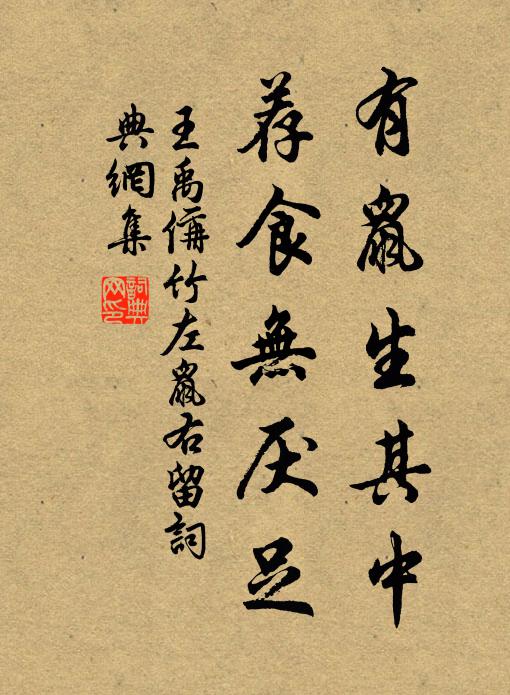 有鼠生其中
荐食無厌足
王禹偁竹左鼠右留詞
典網集
詞典
网印